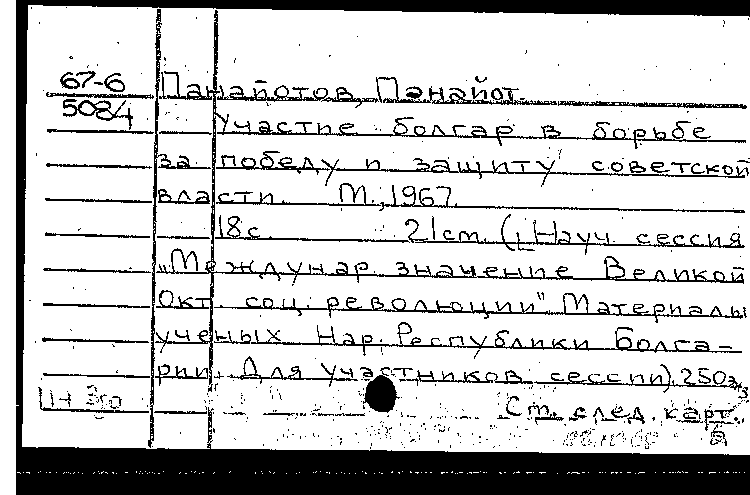 67-6 Панайотов, Панайот.
508/4
Участие болгар в борьбе
за победу и защиту советской
власти. М., 1967.
18с. 21см. (Науч. сессия
„Междунар. значение Великой
Окт. соц. революции" Материалы
ученых Нар. Республики Болга-
рии. Для участников сессии). 250 экз
См. след. карт.